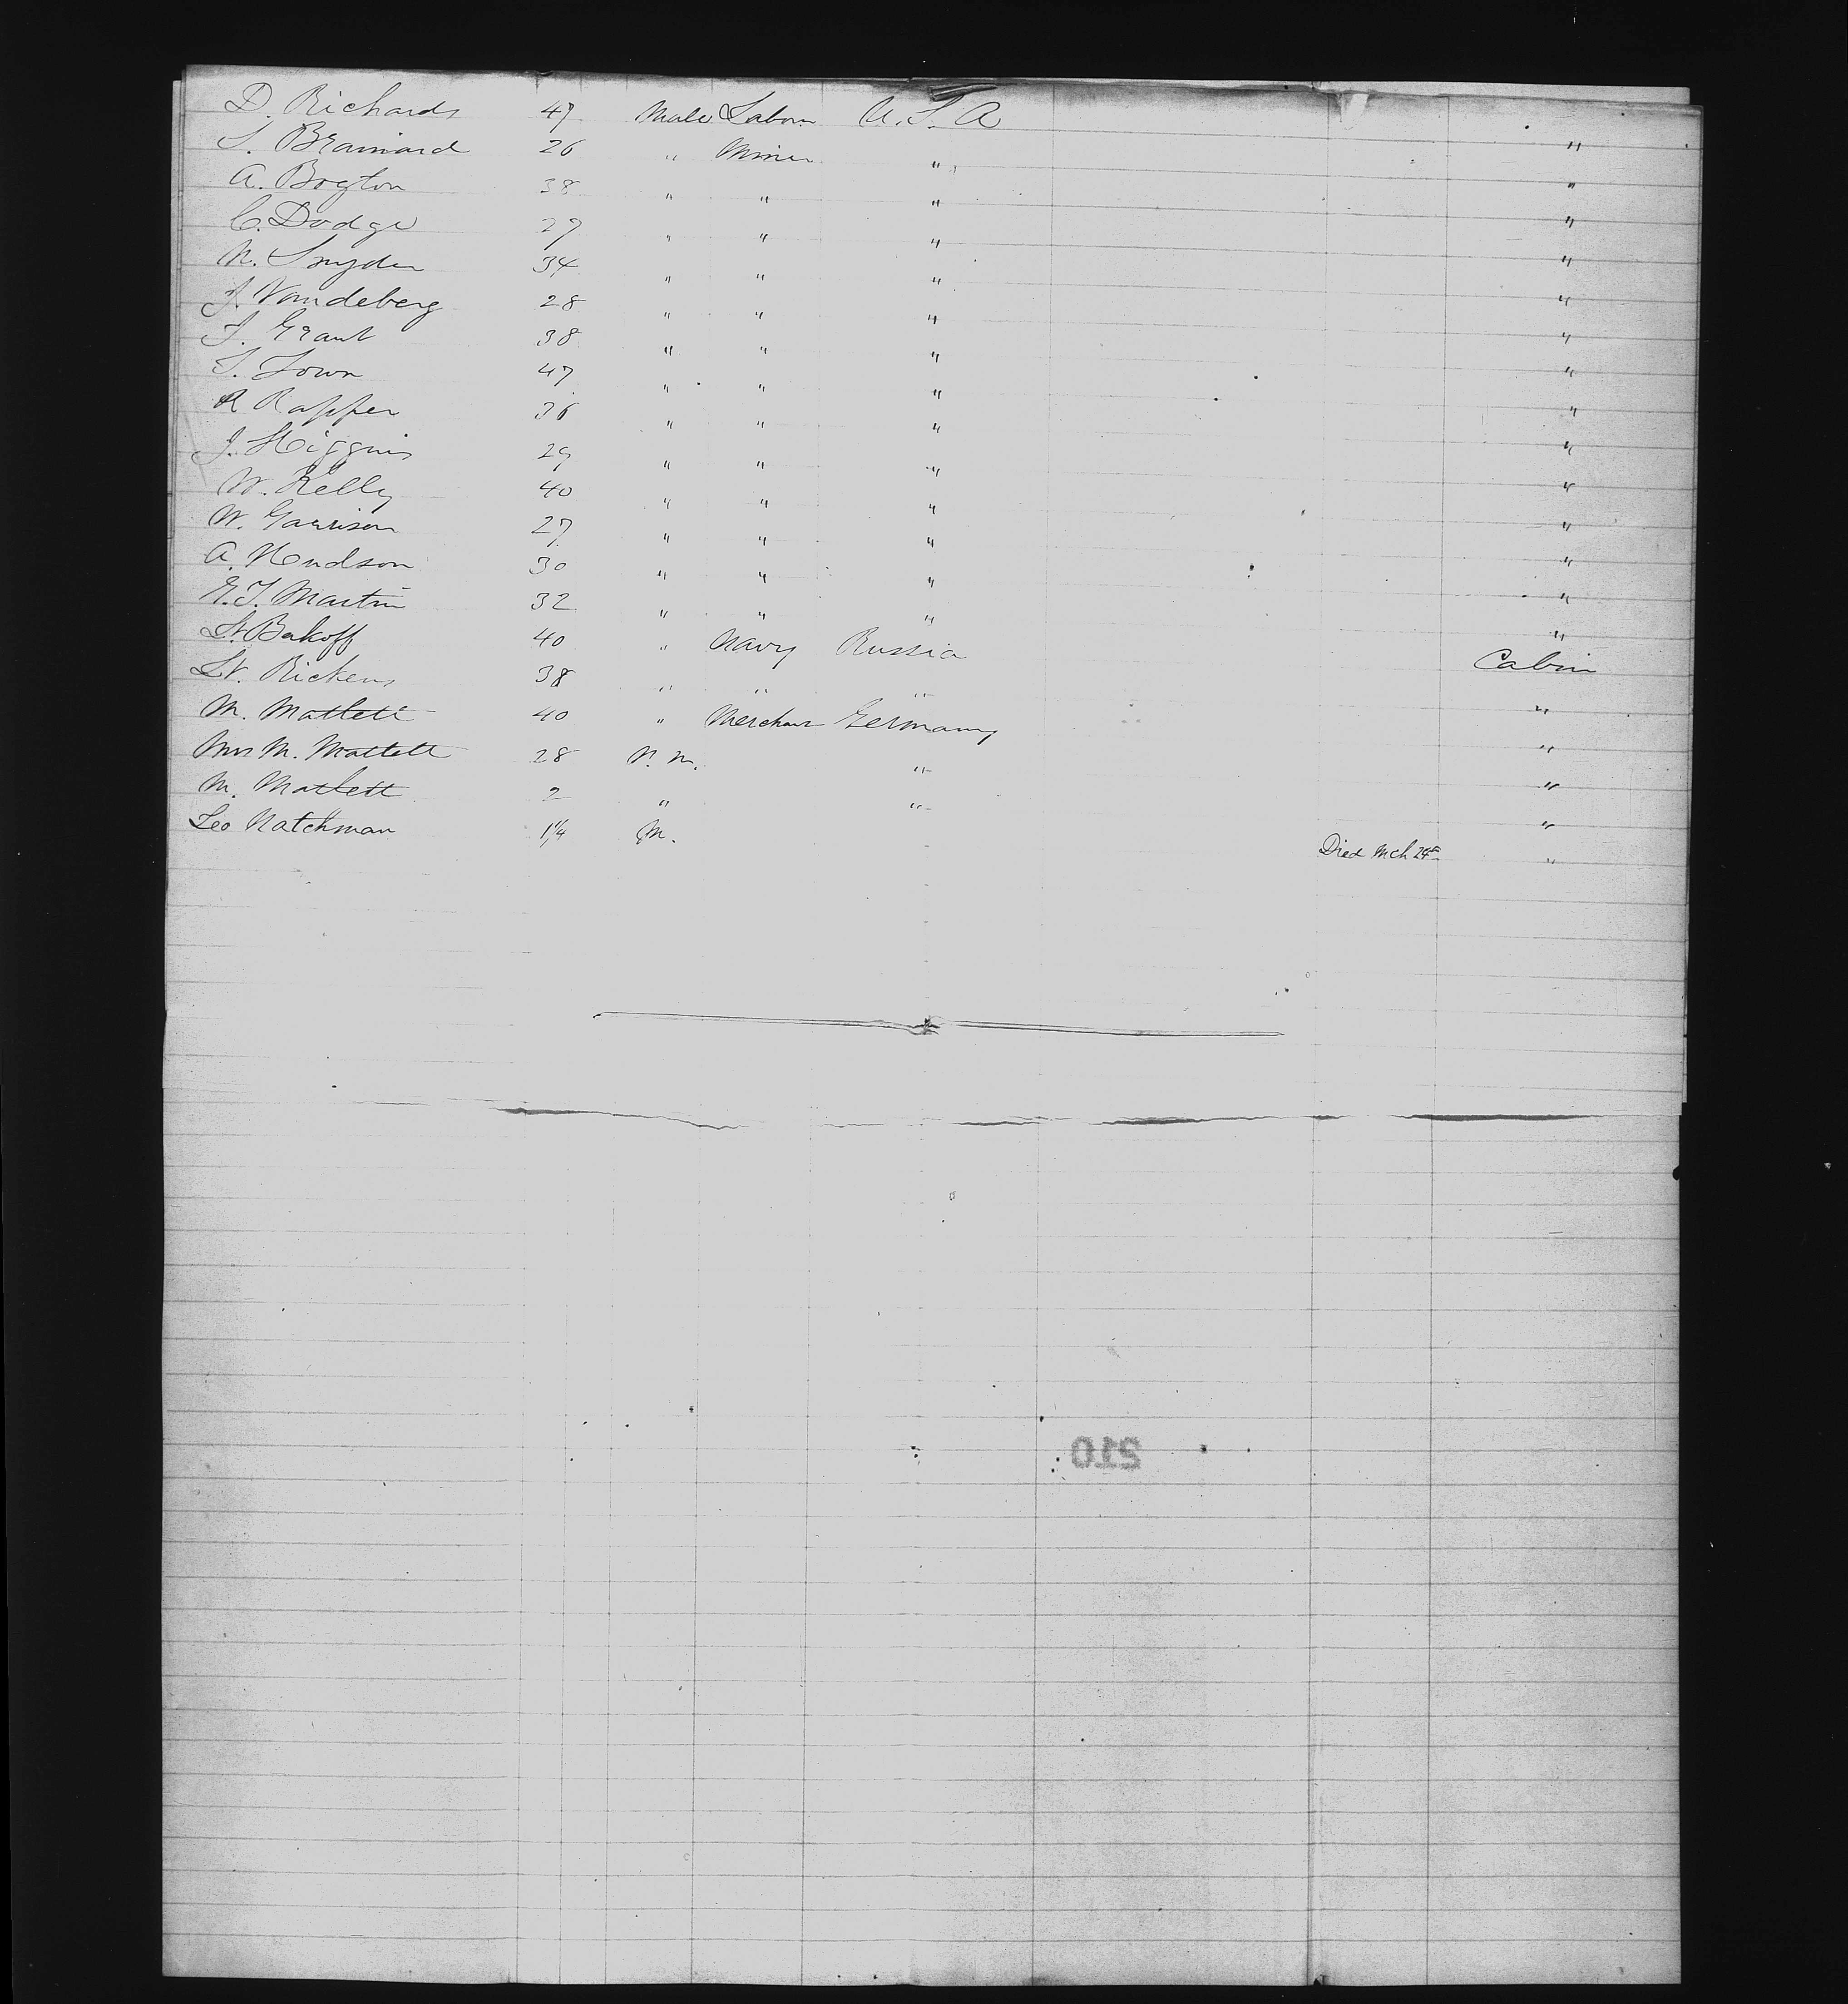 D. Richards 47 Male Labour U.S.A "
S. Brainard 26 " Miner " "
A. Boyton 38 " " " "
C. Dodge 27 " " " "
N. Snyder 34 " " " "
J. Vandeberg 28 " " " "
J. Grant 38 " " " "
T. Town 47 " " " "
R Rapper 36 " " " "
J. Higgins 29 " " " "
W. Kelly 40 " " " "
W. Garrison 27 " " " "
A. Hudson 30 " " " "
E.T. Martin 32 " " " "
Lt. Bakoff 40 " Navy Russia Cabin
Lt. Rickens 38 " " " "
M. Matlett 40 " Merchant Germany "
Mrs M. Matlett 28 " "
M. Matlett 2 " " "
Leo Natchman 1 1/4 M. Died Mch 24th "
210